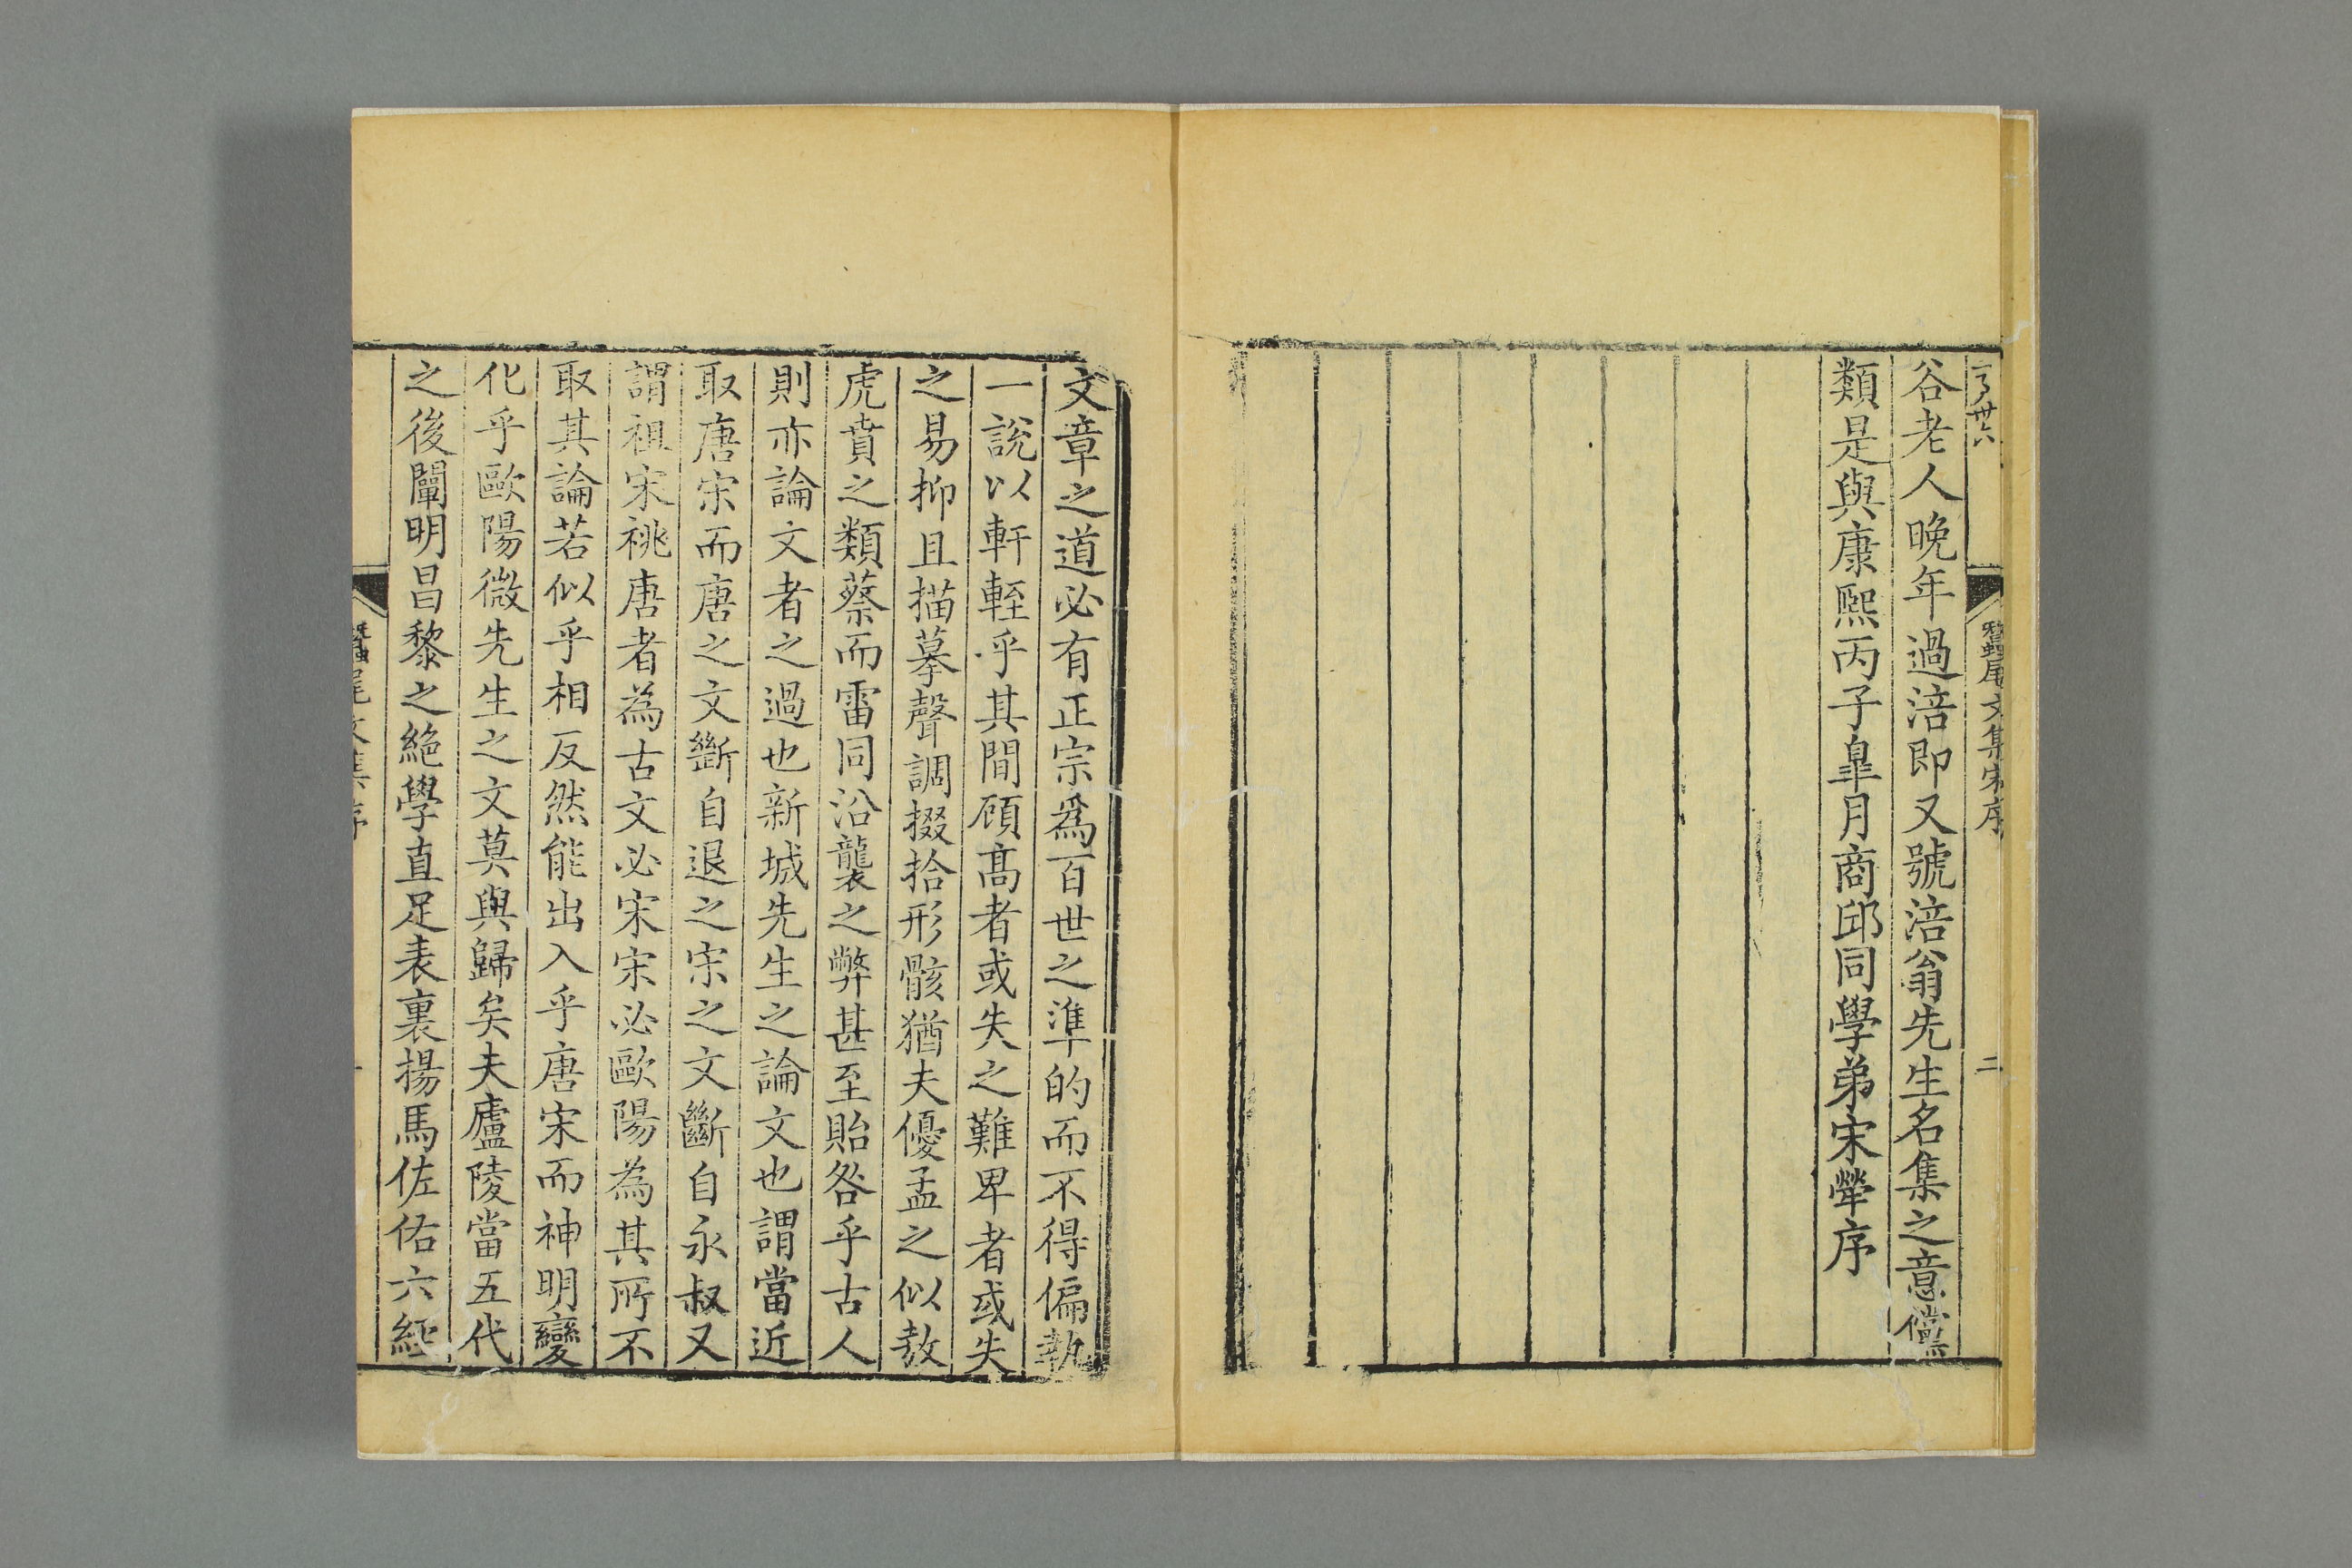 蠶尾文集宋序
二
谷老人晚年過涪即又號涪翁先生名集之意儻
類是與康熙丙子皐月商邱同學弟宋犖序
文章之道必有正宗爲百世之準的而不得偏執
一說以軒輊乎其間頋髙者或失之難卑者或失
之易抑且描摹聲調掇拾形骸猶夫優孟之似敖
虎賁之類蔡而雷同沿襲之弊甚至貽咎乎古人
則亦論文者之過也新城先生之論文也謂當近
取唐宋而唐之文斷自退之宋之文斷自永叔又
謂祖宋祧唐者為古文必宋宋必歐陽為其所不
取其論若似乎相反然能出入乎唐宋而神明變
化乎歐陽微先生之文莫與歸矣夫廬陵當五代
之後闡明昌黎之絕學直足表裏揚馬佐佑六經